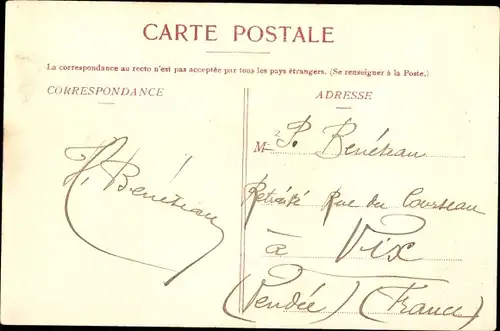 CARTE POSTALE
La correspondance au recto n'est pas acceptée par tous les pays étrangers. (Se renseigner à la Poste.)
CORRESPONDANCE
ADRESSE
H. Benéteau
M P. Benéteau
Retraité Rue du Courseau
à Vix
(Vendée) (France)